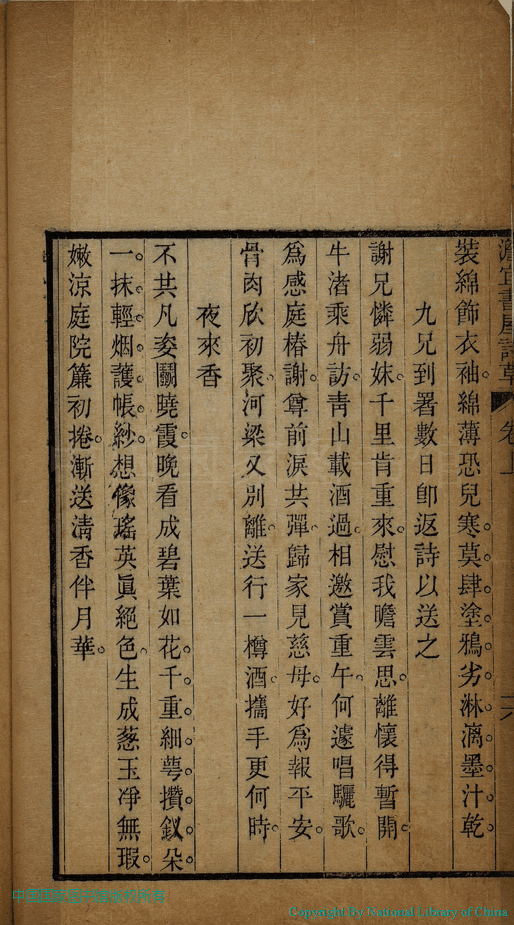 澹宜書屋詩草 卷上 六
裝綿飾衣袖。綿薄恐兒寒。莫肆塗鴉劣。淋漓墨汁乾。
九兄到署數日卽返詩以送之
謝兄憐弱妹。千里肯重來。慰我瞻雲思。離懷得暫開。
牛渚乘舟訪。靑山載酒過。相邀賞重午。何遽唱驪歌。
爲感庭椿謝。尊前淚共彈。歸家見慈母。好爲報平安。
骨肉欣初聚。河梁又別離。送行一樽酒。攜手更何時。
夜來香
不共凡姿鬭曉霞。晚看成碧葉如花。千重細萼攢釵朵。
一抹輕烟護帳紗。想像瑤英眞絕色。生成蔥玉淨無瑕。
嫩涼庭院簾初捲。漸送淸香伴月華。
Copyright by National Library of China